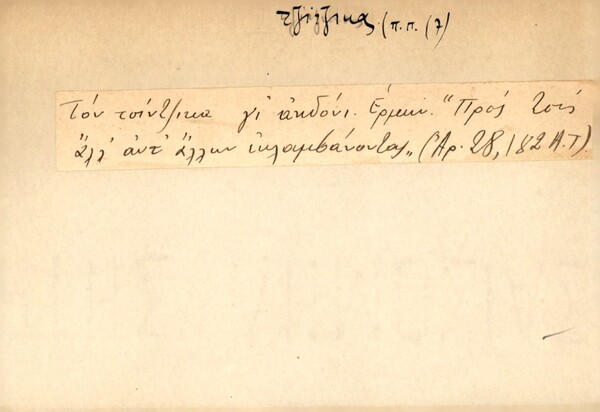 τζίτζικας (π.π. (7)
Τόν τσίντζικα γι' ἀηδόνι. Ἑρμην. "Πρός τούς
ἄλλ' ἀντ' ἄλλων ἐκλαμβάνοντας„ (Ἀρ. 28, 182 Α.Τ)